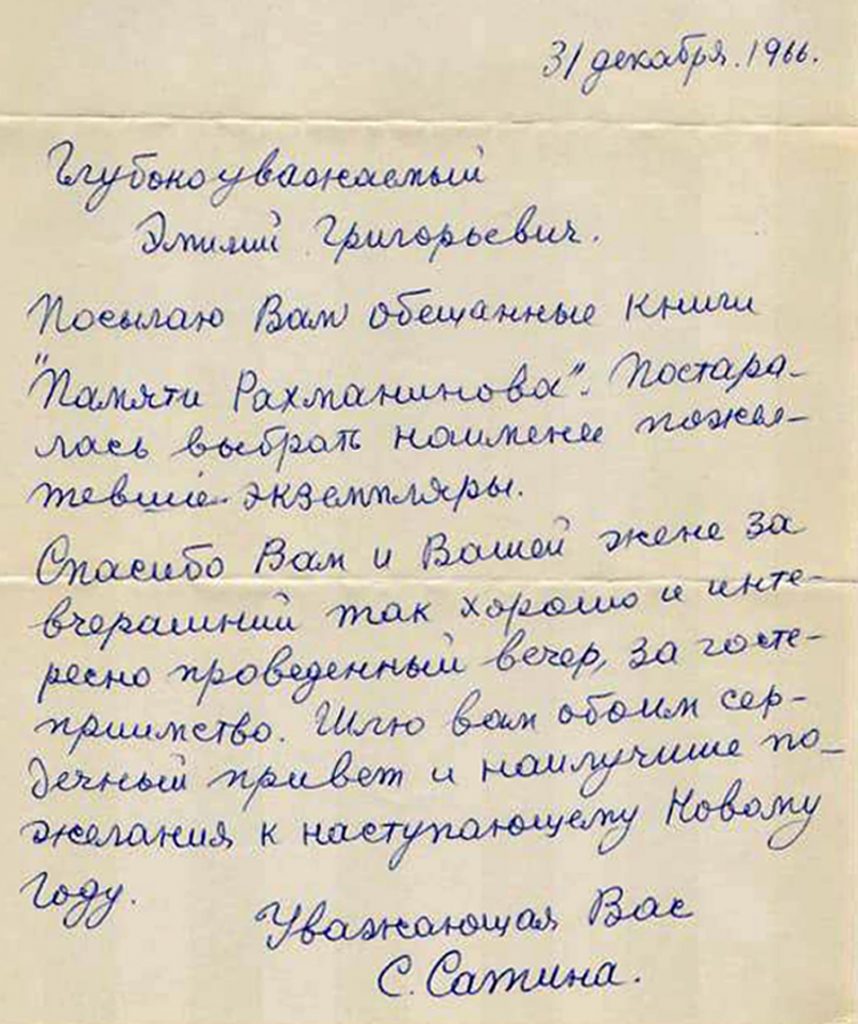 31 декабря. 1966.
Глубокоуважаемый
Эмилий Григорьевич.
Посылаю Вам обещанные книги
"Памяти Рахманинова". Постара-
лась выбрать наименее пожел-
тевшие экземпляры.
Спасибо Вам и Вашей жене за
вчерашний так хорошо и инте-
ресно проведенный вечер, за госте-
приимство. Шлю вам обоим сер-
дечный привет и наилучшие по-
желания к наступающему Новому
Году.
Уважающая Вас
С. Сатина.